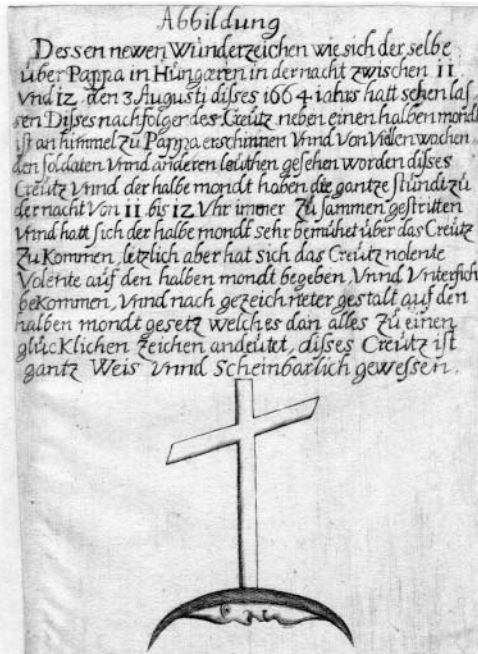 Abbildung
Dessen newen Wunderzeichen wie sich der selbe
über Pappa in Hungæren in der nacht zwischen 11
vnd 12 den 3 Augusti disses 1664 iahrs hatt sehen las
sen Disses nachfolgendes Creütz neben einen halben mondt
ist an himmel zu Pappa erschinnen Vnnd von Villen wachen
den soldaten Vnnd anderen leuthen gesehen worden disses
Creütz Vnnd der halbe mondt haben die gantze stundt zu
der nacht Von 11 bis 12 Vhr immer Zu sammen gestritten
Vnnd hatt sich der halbe mondt sehr bemühet über das Creütz
Zu Kommen, letzlich aber hat sich das Creütz nolente
Volente auf den halben mondt begeben, Vnnd Vntersich
bekommen, Vnnd nach gezeichneter gestalt auf den
halben mondt gesetz welches dan alles Zu einen
glücklichen Zeichen andeutet, disses Creütz ist
gantz Weis Vnnd Scheinbarlich gewessen.